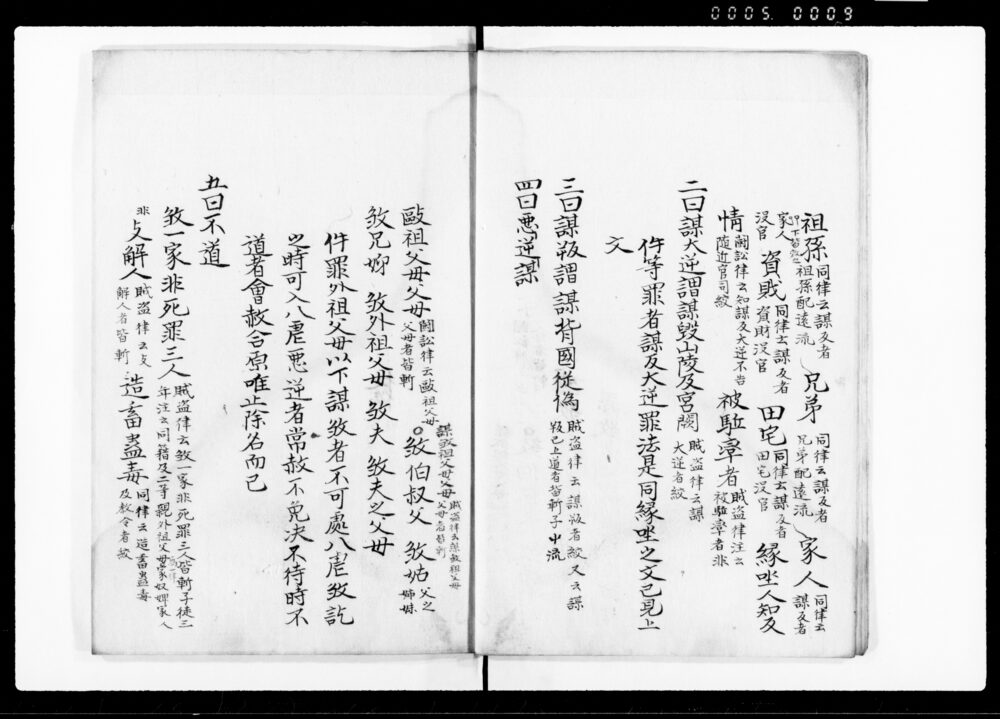 0005. 0009
祖孫 同律云謀反者祖孫配遠流 兄弟 同律云謀反者兄弟配遠流 家人 同律云謀反者
家人没官 資財 同律云謀反者資財没官 田宅 同律云謀反者田宅没官 縁坐人知反
情 闘訟律云知謀反大逆不告随近官司絞 被駈率者 賊盗律注云被駈率者非
二曰謀大逆謂謀毀山陵及宮闕 賊盗律云謀大逆者絞
件等罪者謀反大逆罪法是同縁坐之文已見上
文
三曰謀叛謂謀背国従偽 賊盗律云謀叛者絞又云謀叛已上道者皆斬子中流
四曰悪逆謀
毆祖父母父母 闘訟律云毆祖父母父母者皆斬 謀殺祖父母父母 賊盗律云謀殺祖父母父母者皆斬 ○ 殺伯叔父 殺姑 父之姉妹
殺兄姉 殺外祖父母 殺夫 殺夫之父母
件罪外祖父母以下謀殺者不可處八虐殺訖
之時可入八虐悪逆者常赦不免決不待時不
道者會赦合原唯止除名而已
五曰不道
殺一家非死罪三人 賊盗律云殺一家非死罪三人皆斬子徒三年注云同籍及二等親外祖父母家奴婢家人
非 支解人 賊盗律云支解人者皆斬 造畜蠱毒 同律云造畜蠱毒及教令者絞